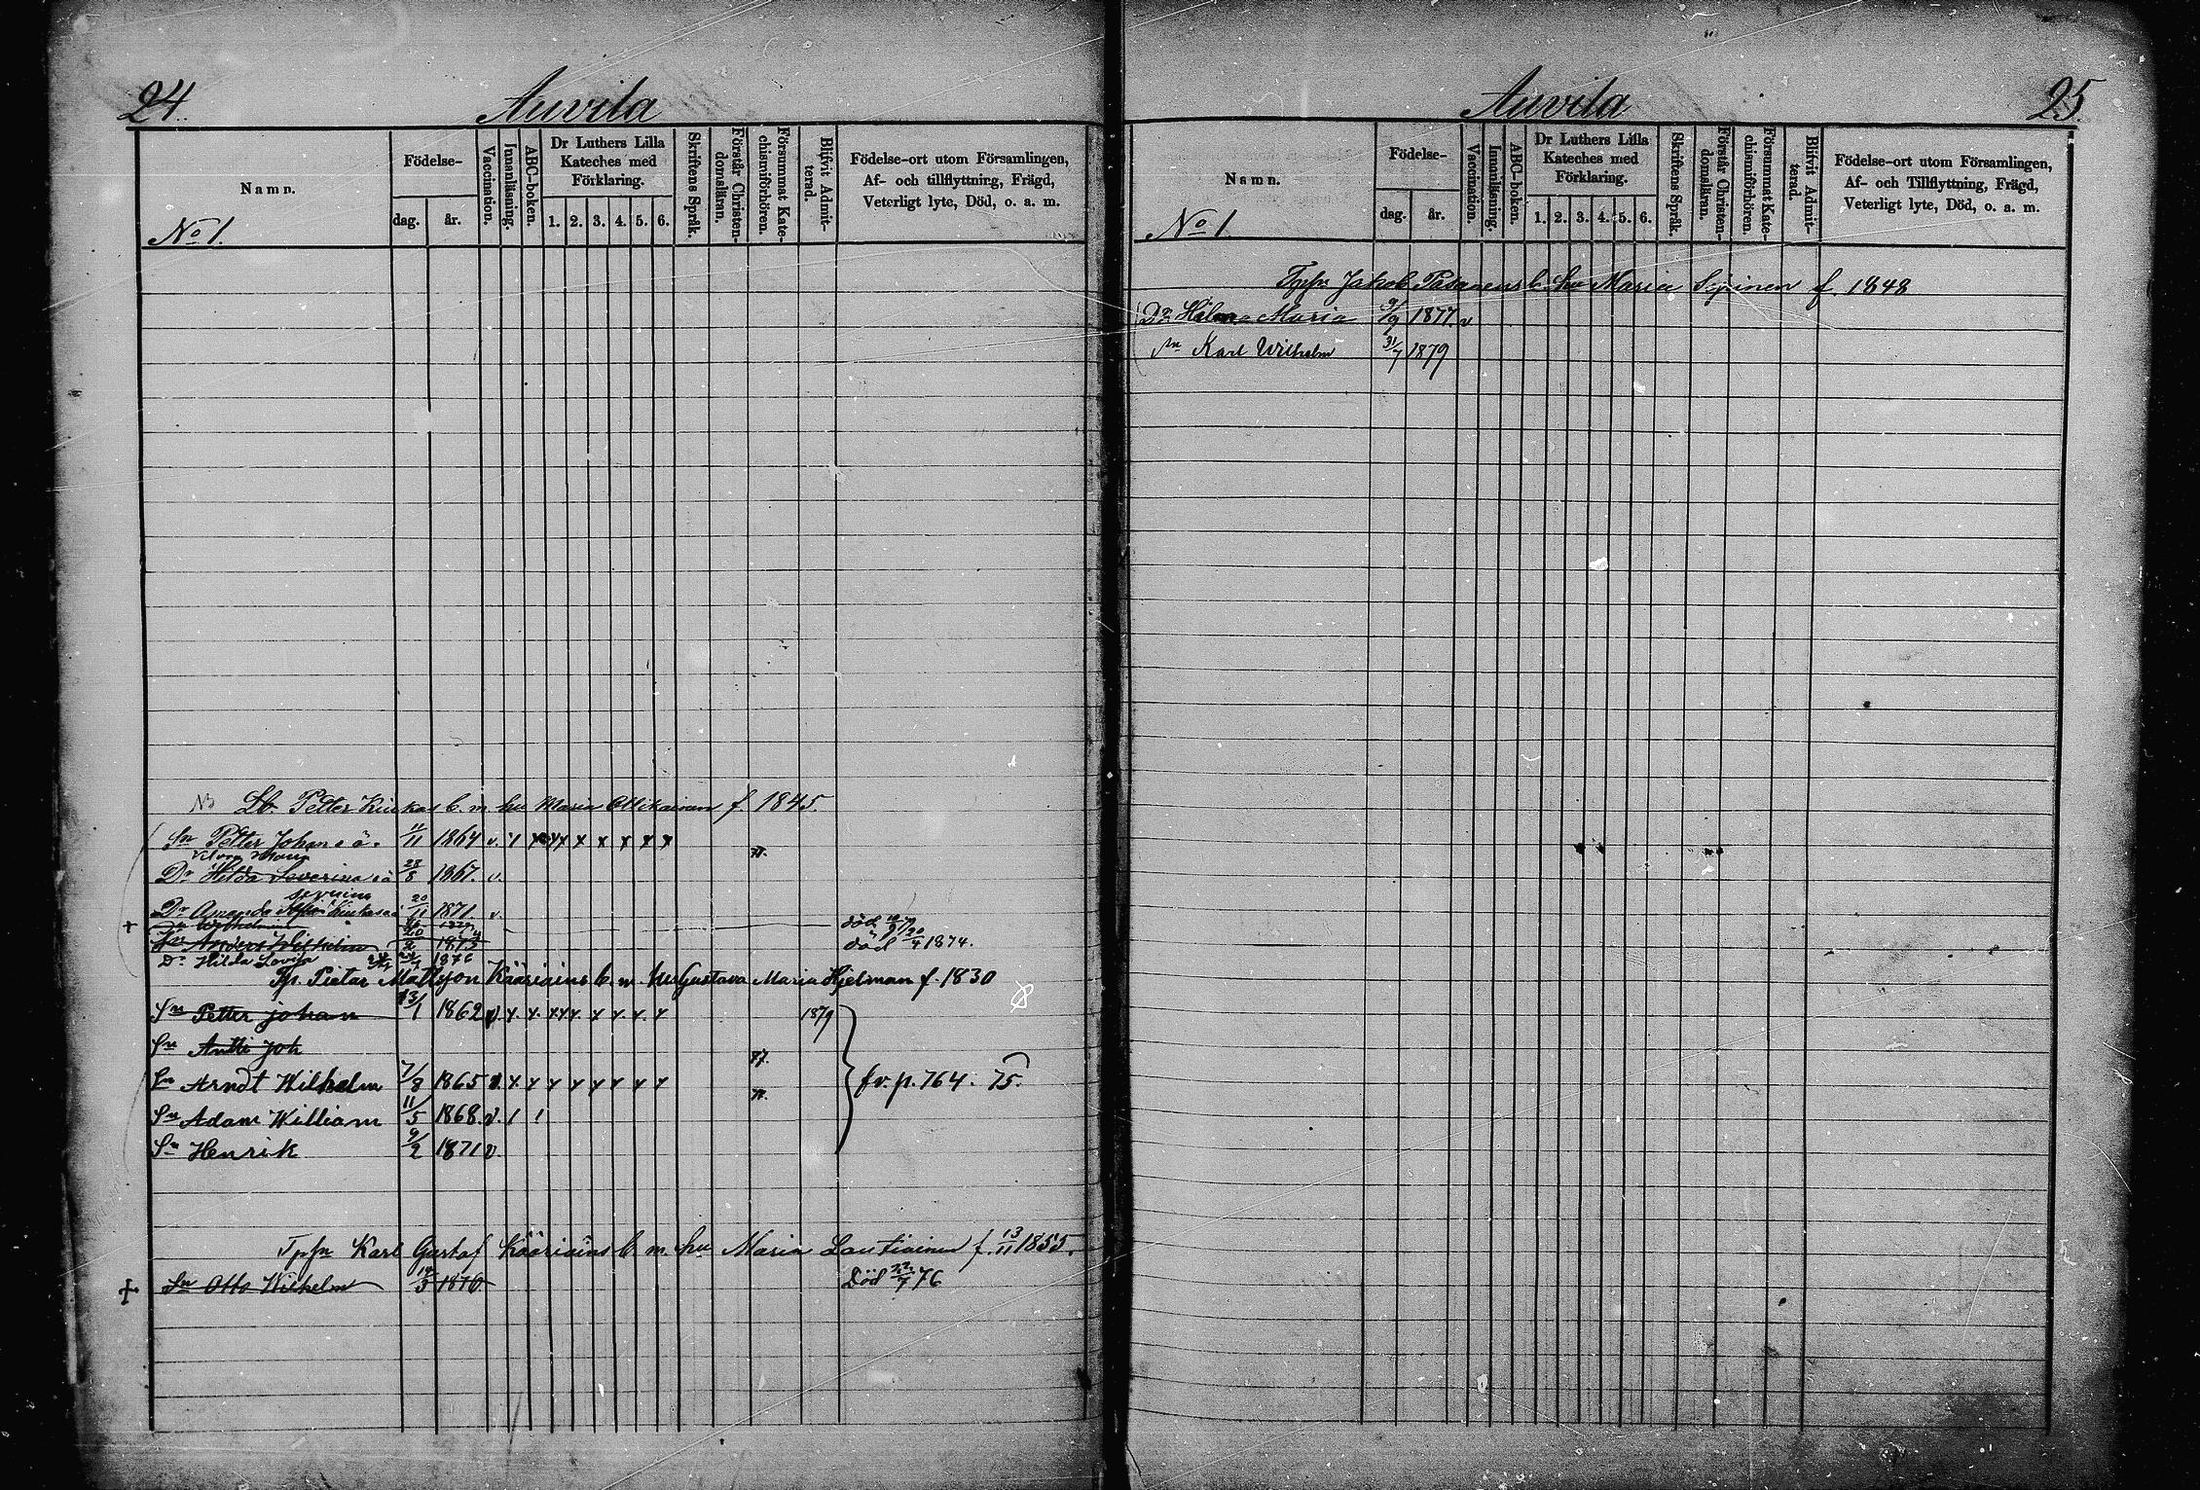 24. Auvila
Namn.
No 1.
Födelse-
dag. år.
Vaccination.
Innanläsning.
ABC-boken.
Dr Luthers Lilla
Kateches med
Förklaring.
1. 2. 3. 4. 5. 6.
Skriftens Språk.
Förstår Christen-
domsläran.
Försummat Kate-
chismiförhören.
Blifvit Admit-
terad.
Födelse-ort utom Församlingen,
Af- och tillflyttning, Frägd,
Veterligt lyte, Död, o. a. m.
Lb. Petter Kiukas b. m. hu Maria Ollikainen f. 1845.
Sn Petter Johan 11/11 1864 v. 1 x x x x x x x x
Dr Hilda Severina 28/8 1867. v.
Dr Amanda 20/11 1871 v.
Sn Anders Wilhelm 1873 död 20/4 1874.
Dr Hilda Lovisa 1876
Pietar Mattsson Kääriäins b. m. Gustava Maria Hjelman f. 1830
Sn Petter Johan 13/1 1862 v. x. x. x x x. x x. x. x 1879
Sn Antti Joh
Sn Arndt Wilhelm 7/8 1865 v. x x x x x x x x fv. p. 764. 75.
Sn Adam William 11/5 1868. v. 1 1
Sn Henrik 9/2 1871 v
Tpfn Karl Gustaf Kääriäins b. m. hu Maria Lautiainen f. 13/11 1855.
Sn Otto Wilhelm 14/3 1876 Död 22/7 76
Auvila 25.
Namn.
No 1
Födelse-
dag. år.
Vaccination.
Innanläsning.
ABC-boken.
Dr Luthers Lilla
Kateches med
Förklaring.
1. 2. 3. 4. 5. 6.
Skriftens Språk.
Förstår Christen-
domsläran.
Försummat Kate-
chismiförhören.
Blifvit Admit-
terad.
Födelse-ort utom Församlingen,
Af- och Tillflyttning, Frägd,
Veterligt lyte, Död, o. a. m.
Tpfn Jakob Pasanens b. hu Maria Sipinen f. 1848
Dr Hilma Maria 9/9 1877. v
Sn Karl Wilhelm 31/7 1879